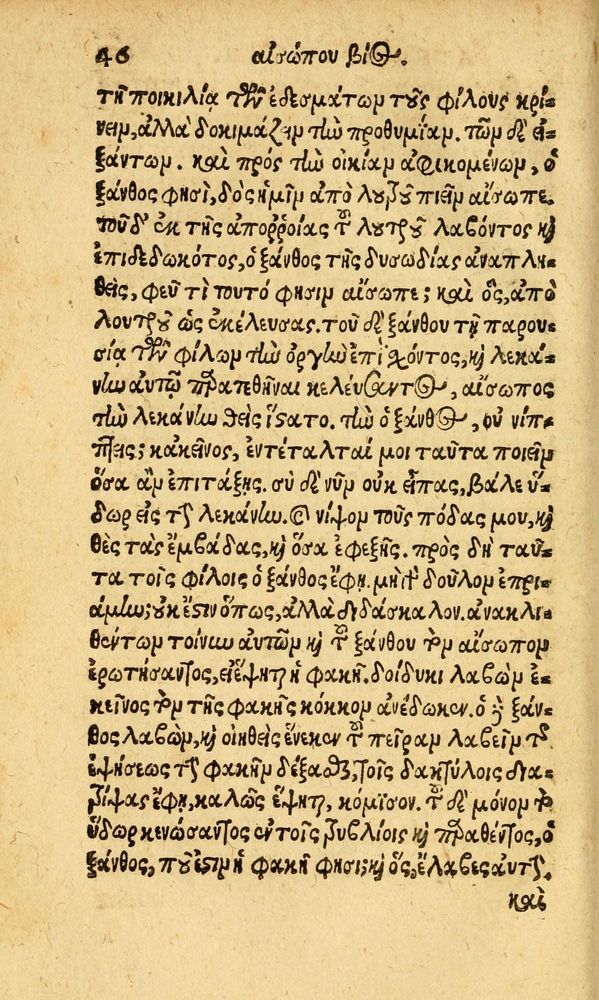 46 αἰσώπου βίος.
τῇ ποικιλίᾳ τῶν ἐδεσμάτων τοὺς φίλους κρί-
νειν, ἀλλὰ δοκιμάζειν τὴν προθυμίαν. τῶν δὲ ἐι-
ξάντων. καὶ πρὸς τὴν οἰκίαν ἀφικομένων, ὁ
ξάνθος φησὶ, δὸς ἡμῖν ἀπὸ λουτροῦ πιεῖν αἴσωπε.
τοῦ δ' ἐκ τῆς ἀποῤῥοίας τοῦ λουτροῦ λαβόντος καὶ
ἐπιδεδωκότος, ὁ ξάνθος τῆς δυσωδίας ἀναπλη-
θεὶς, φεῦ τί τουτό φησιν αἴσωπε; καὶ ὃς, ἀπὸ
λουτροῦ ὡς ἐκέλευσας. τοῦ δὲ ξάνθου τῇ παρου-
σίᾳ τῶν φίλων τὴν ὀργὴν ἐπιχόντος, καὶ λεκά-
νην αὐτῷ παρατεθῆναι κελεύσαντος, αἴσωπος
τὴν λεκάνην θεὶς ἵστατο. τὴν ὁ ξάνθος, οὐ νίπ-
τεις; κἀκεῖνος, ἐντέταλταί μοι ταῦτα ποιεῖν
ὅσα ἂν ἐπιτάξῃς. σὺ δὲ νῦν οὐκ εἶπας, βάλε ὕ-
δωρ εἰς τὴν λεκάνην. καὶ νίψον τοὺς πόδας μου, καὶ
θὲς τὰς ἐμβάδας, καὶ ὅσα ἐφεξῆς. πρὸς δὴ ταῦ-
τα τοῖς φίλοις ὁ ξάνθος ἔφη. μὴ γὰρ δοῦλον ἐπρι-
άμην; οὐκ ἔστιν ὅπως, ἀλλὰ διδάσκαλον. ἀνακλι-
θέντων τοίνυν αὐτῶν καὶ τοῦ ξάνθου τὸν αἴσωπον
ἐρωτήσαντος, εἰ ἕψηται ἡ φακῆ. δοίδυκι λαβὼν ἐ-
κεῖνος τὸν τῆς φακῆς κόκκον ἀνέδωκεν. ὁ δὲ ξάν-
θος λαβὼν, καὶ οἰηθεὶς ἕνεκεν τοῦ πεῖραν λαβεῖν τῆς
ἑψήσεως τὴν φακῆν δέξασθαι, τοῖς δακτύλοις δια-
τρίψας ἔφη, καλῶς ἕψηται, κόμισον. τοῦ δὲ μόνον τὸ
ὕδωρ κενώσαντος ἐν τοῖς τρυβλίοις καὶ παραθέντος, ὁ
ξάνθος, ποῦ ἐστιν ἡ φακῆ φησι; καὶ ὃς, ἔλαβες αὐτήν.
καὶ